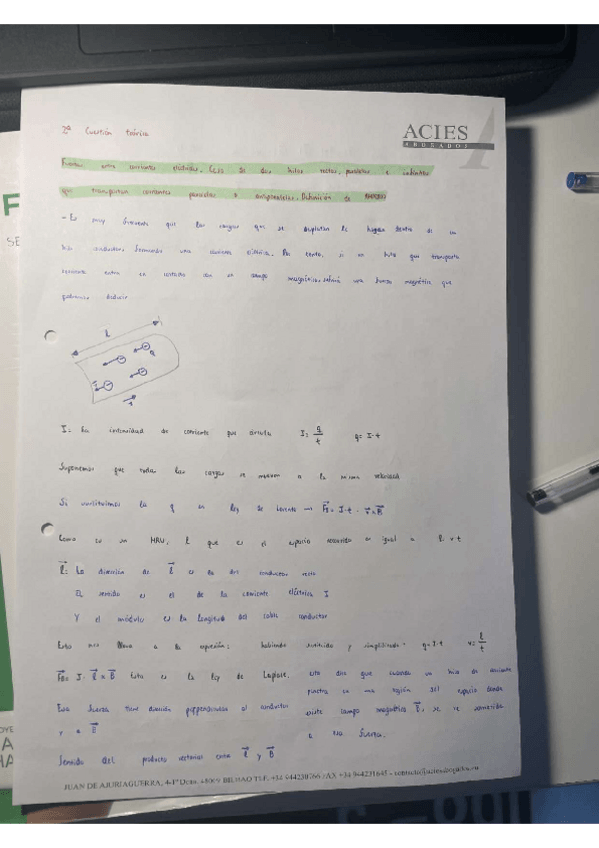 ACIES
ABOGADOS
2ª Cuestión teórica
Fuerzas entre corrientes eléctricas. Caso de dos hilos rectos, paralelos e infinitos
que transportan corrientes paralelas o antiparalelas. Definición de
- Es muy frecuente que las cargas que se desplazan lo hagan dentro de un
hilo conductor formando una corriente eléctrica. Por tanto, si un hilo que transporta
corriente entra en contacto con un campo magnético, sufrirá una fuerza magnética que
podremos deducir
l
q
I
I = La intensidad de corriente que circula I = q/t q = I · t
Suponemos que todas las cargas se mueven a la misma velocidad
Si sustituimos la q en ley de Lorentz → = I · t · v⃗ × B⃗
Como es un MRU, l que es el espacio recorrido es igual a l = v · t
l⃗ = La dirección de l⃗ es la del conductor recto
El sentido es el de la corriente eléctrica I
Y el módulo es la longitud del cable conductor
Esto nos lleva a la expresión: habiendo sustituido y simplificado q = I · t v = l/t
F⃗B = I · l⃗ × B⃗ Esta es la ley de Laplace. Esta dice que cuando un hilo de corriente
penetra en una región del espacio donde
Esa fuerza tiene dirección perpendicular al conductor
existe campo magnético B⃗, se ve sometida
y a B⃗
a esa fuerza.
Sentido del producto vectorial entre l⃗ y B⃗
JUAN DE AJURIAGUERRA, 4-1º Dcha. 48009 BILBAO TLF. +34 944230766 FAX +34 944231645 -